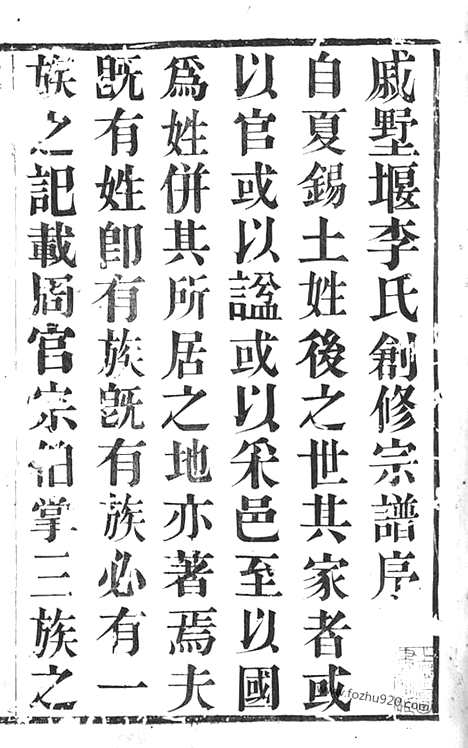 戚墅堰李氏創修宗譜序
自夏錫土姓後之世其家者或
以官或以諡或以采邑至以國
爲姓併其所居之地亦著焉夫
既有姓卽有族既有族必有一
族之記載周官宗伯掌三族之
www.fozhu920.com